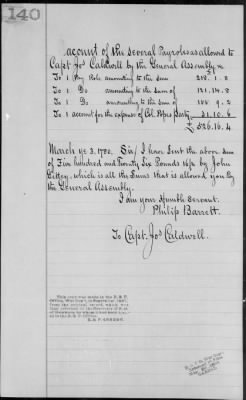 140
acount of the several Payroles as allowed to
Capt Jos Caldwell by the General Assembly
To 1 Pay Role amounting to the sum 218.1.8
To 1 Do amounting to the sum of 121.14.8
To 1 Do amounting to the sum of 155.9.2
To 1 account for the expense of Col. Popes Party 31.10.6
£ 526.16.4
March ye 3. 1780. Sir/ I have Sent the above Sum
of Five hundred and Twenty Six Pounds 16/4 by John
which is all the Sums that is allowed you by
the General Assembly.
I am your Humble Servant.
Philip Barrett.
To Capt. Jos Caldwell.
This copy was made in the R. & P.
Office, War Dep't, in
from the original record, which was
then returned to the